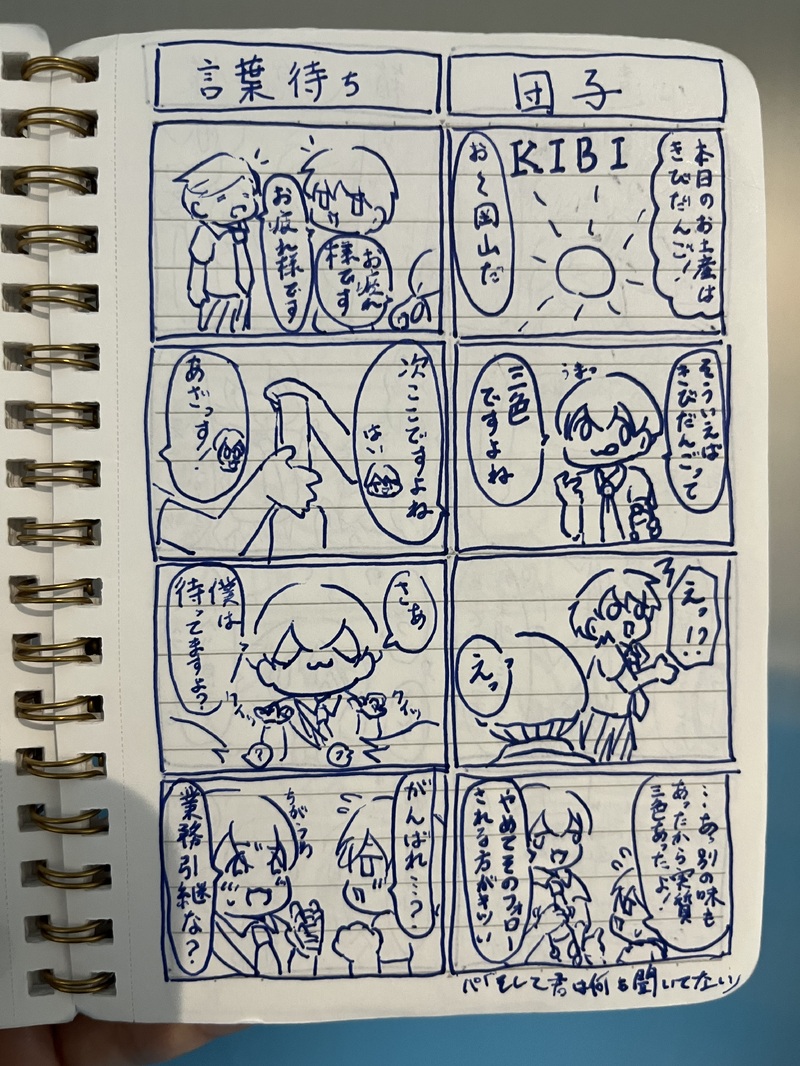 団子
本日のお土産は
きびだんご!
KIBI
お〜岡山だ
そういえば
きびだんごって
うきっ
三色
ですよね
えっ!?
えっ
…あっ別の味も
あったから実質
三色あったよ!
やめてそのフォロー
される方がキツい
そして君は何も聞いてない
言葉待ち
お疲れ
様です
お疲れ様です
次ここですよね
はい
あざっす!
さあ
僕は
待ってますよ?
クイッ
クイッ
?
?
がんばれ…?
ちがうわ
業務引継な?